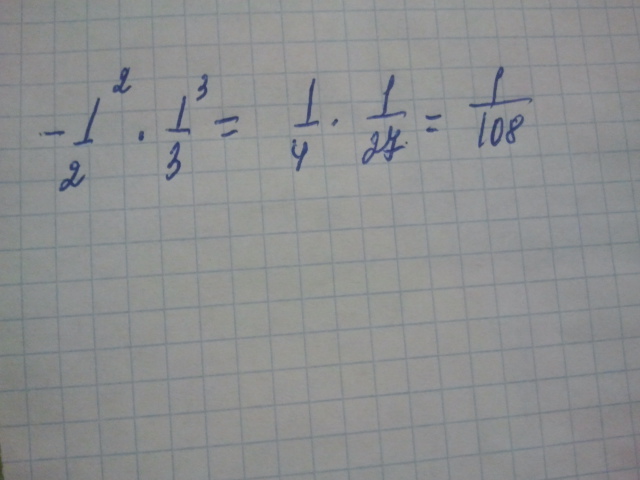 -1/2² · 1/3³ = 1/4 · 1/27 = 1/108